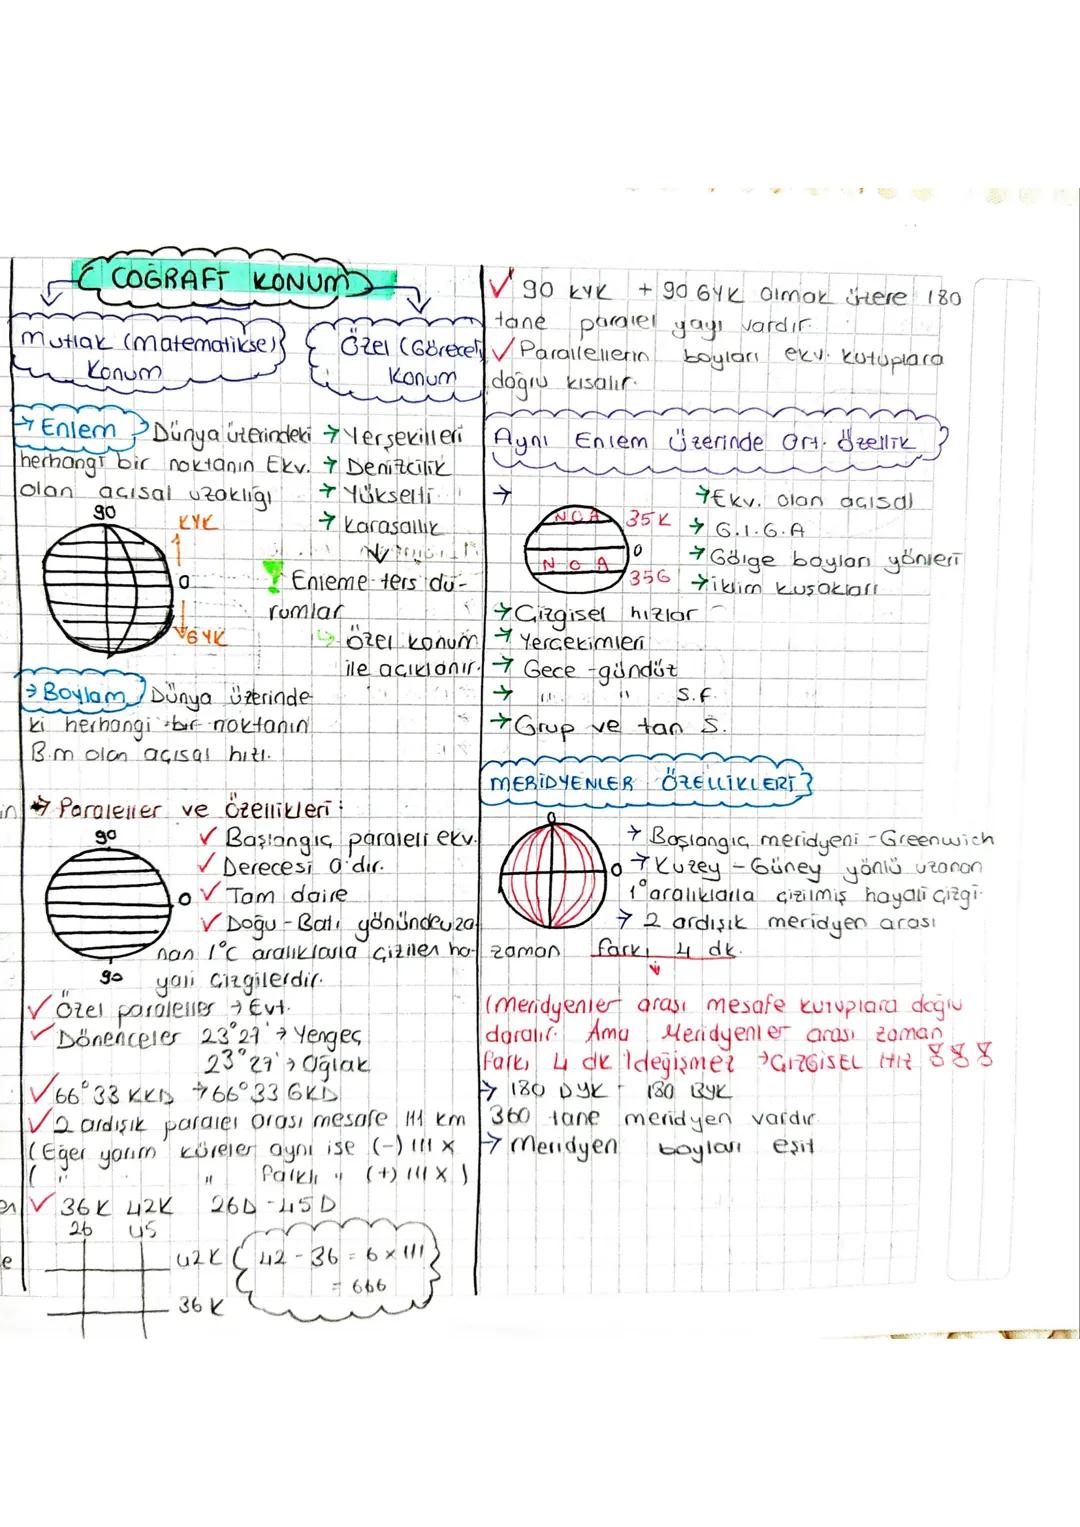 COĞRAFİ KONUM
Mutlak (Matematiksel)
Konum
Özel (Göreceli)
Konum
→ Enlem Dünya üzerindeki
herhangi bir noktanın Ekv.
olan açısal uzaklığı
90
KYK
0
GYK
→ Yerşekilleri
→ Denizcilik
→ Yükselti
→ Karasallık
Enleme ters du-
rumlar
Özel konum
ile açıklanır.
→ Boylam Dünya üzerinde-
ki herhangi bir noktanın
B.m olan açısal hızı.
→ Paraleller ve Özellikleri:
90
0
90
✓ Başlangıç paraleli ekv.
✓ Derecesi 0'dır.
✓ Tam daire
✓ Doğu-Batı yönünde uza
nan 1°C aralıklarla çizilen ha-
yali çizgilerdir.
✓ Özel paraleller → Evt.
✓ Dönenceler 23°27' → Yengeç
23°27' → Oğlak
✓ 66°33 KKD → 66°33 GKD
✓ 2 ardışık paralel arası mesafe 111 km
(Eğer yarım küreler aynı ise (-) 111 x
( " " farklı " (+) 111 x )
✓ 36K 42K 26D-45D
26 45
42K
36K
42 - 36 = 6 x 111
= 666
✓ 90 KYK + 90 GYK olmak üzere 180
tane paralel yayı vardır.
✓ Parallellerin boyları ekv. kutuplara
doğru kısalır.
Aynı Enlem Üzerinde Ort. Özellik
→
NOA 35K
0
NOA 35G
→ Ekv. olan açısal
→ G.I.G.A
→ Gölge boyları yönleri
→ iklim kuşakları
→ Çizgisel hızlar
→ Yerçekimleri
→ Gece-gündüz
→ " " s.f.
→ Grup ve tan s.
MERİDYENLER ÖZELLİKLERİ
0
0
→ Başlangıç meridyeni - Greenwich
→ Kuzey - Güney yönlü uzanan
1° aralıklarla çizilmiş hayali çizgi.
→ 2 ardışık meridyen arası
zaman farkı 4 dk.
(Meridyenler arası mesafe kutuplara doğru
daralır. Ama Meridyenler arası zaman
farkı 4 dk değişmez → ÇİZGİSEL HIZ
→ 180 DYK 180 BYK
360 tane meridyen vardır.
→ Meridyen boyları eşit